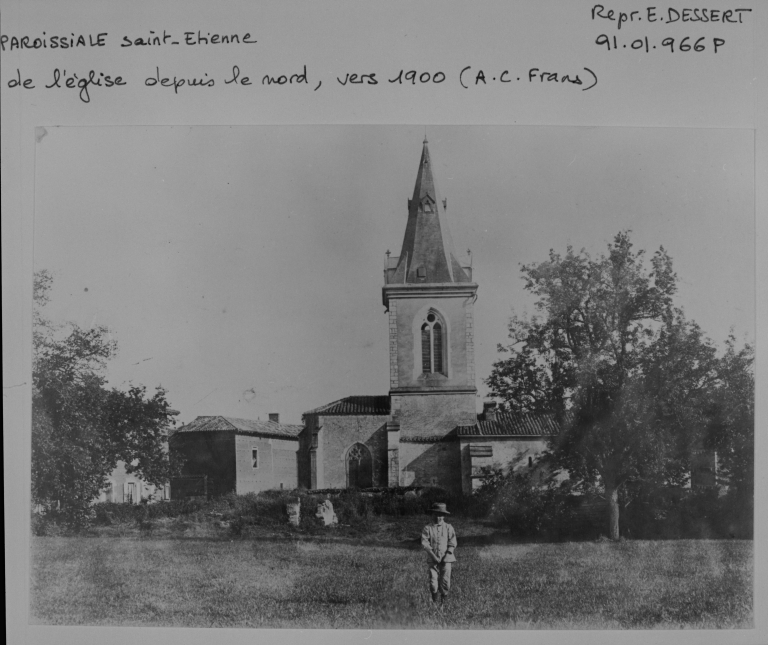 Repr. E. DESSERT
PAROISSIALE saint-Etienne
91.01.966 P
de l'église depuis le nord, vers 1900 (A.C. Frans)